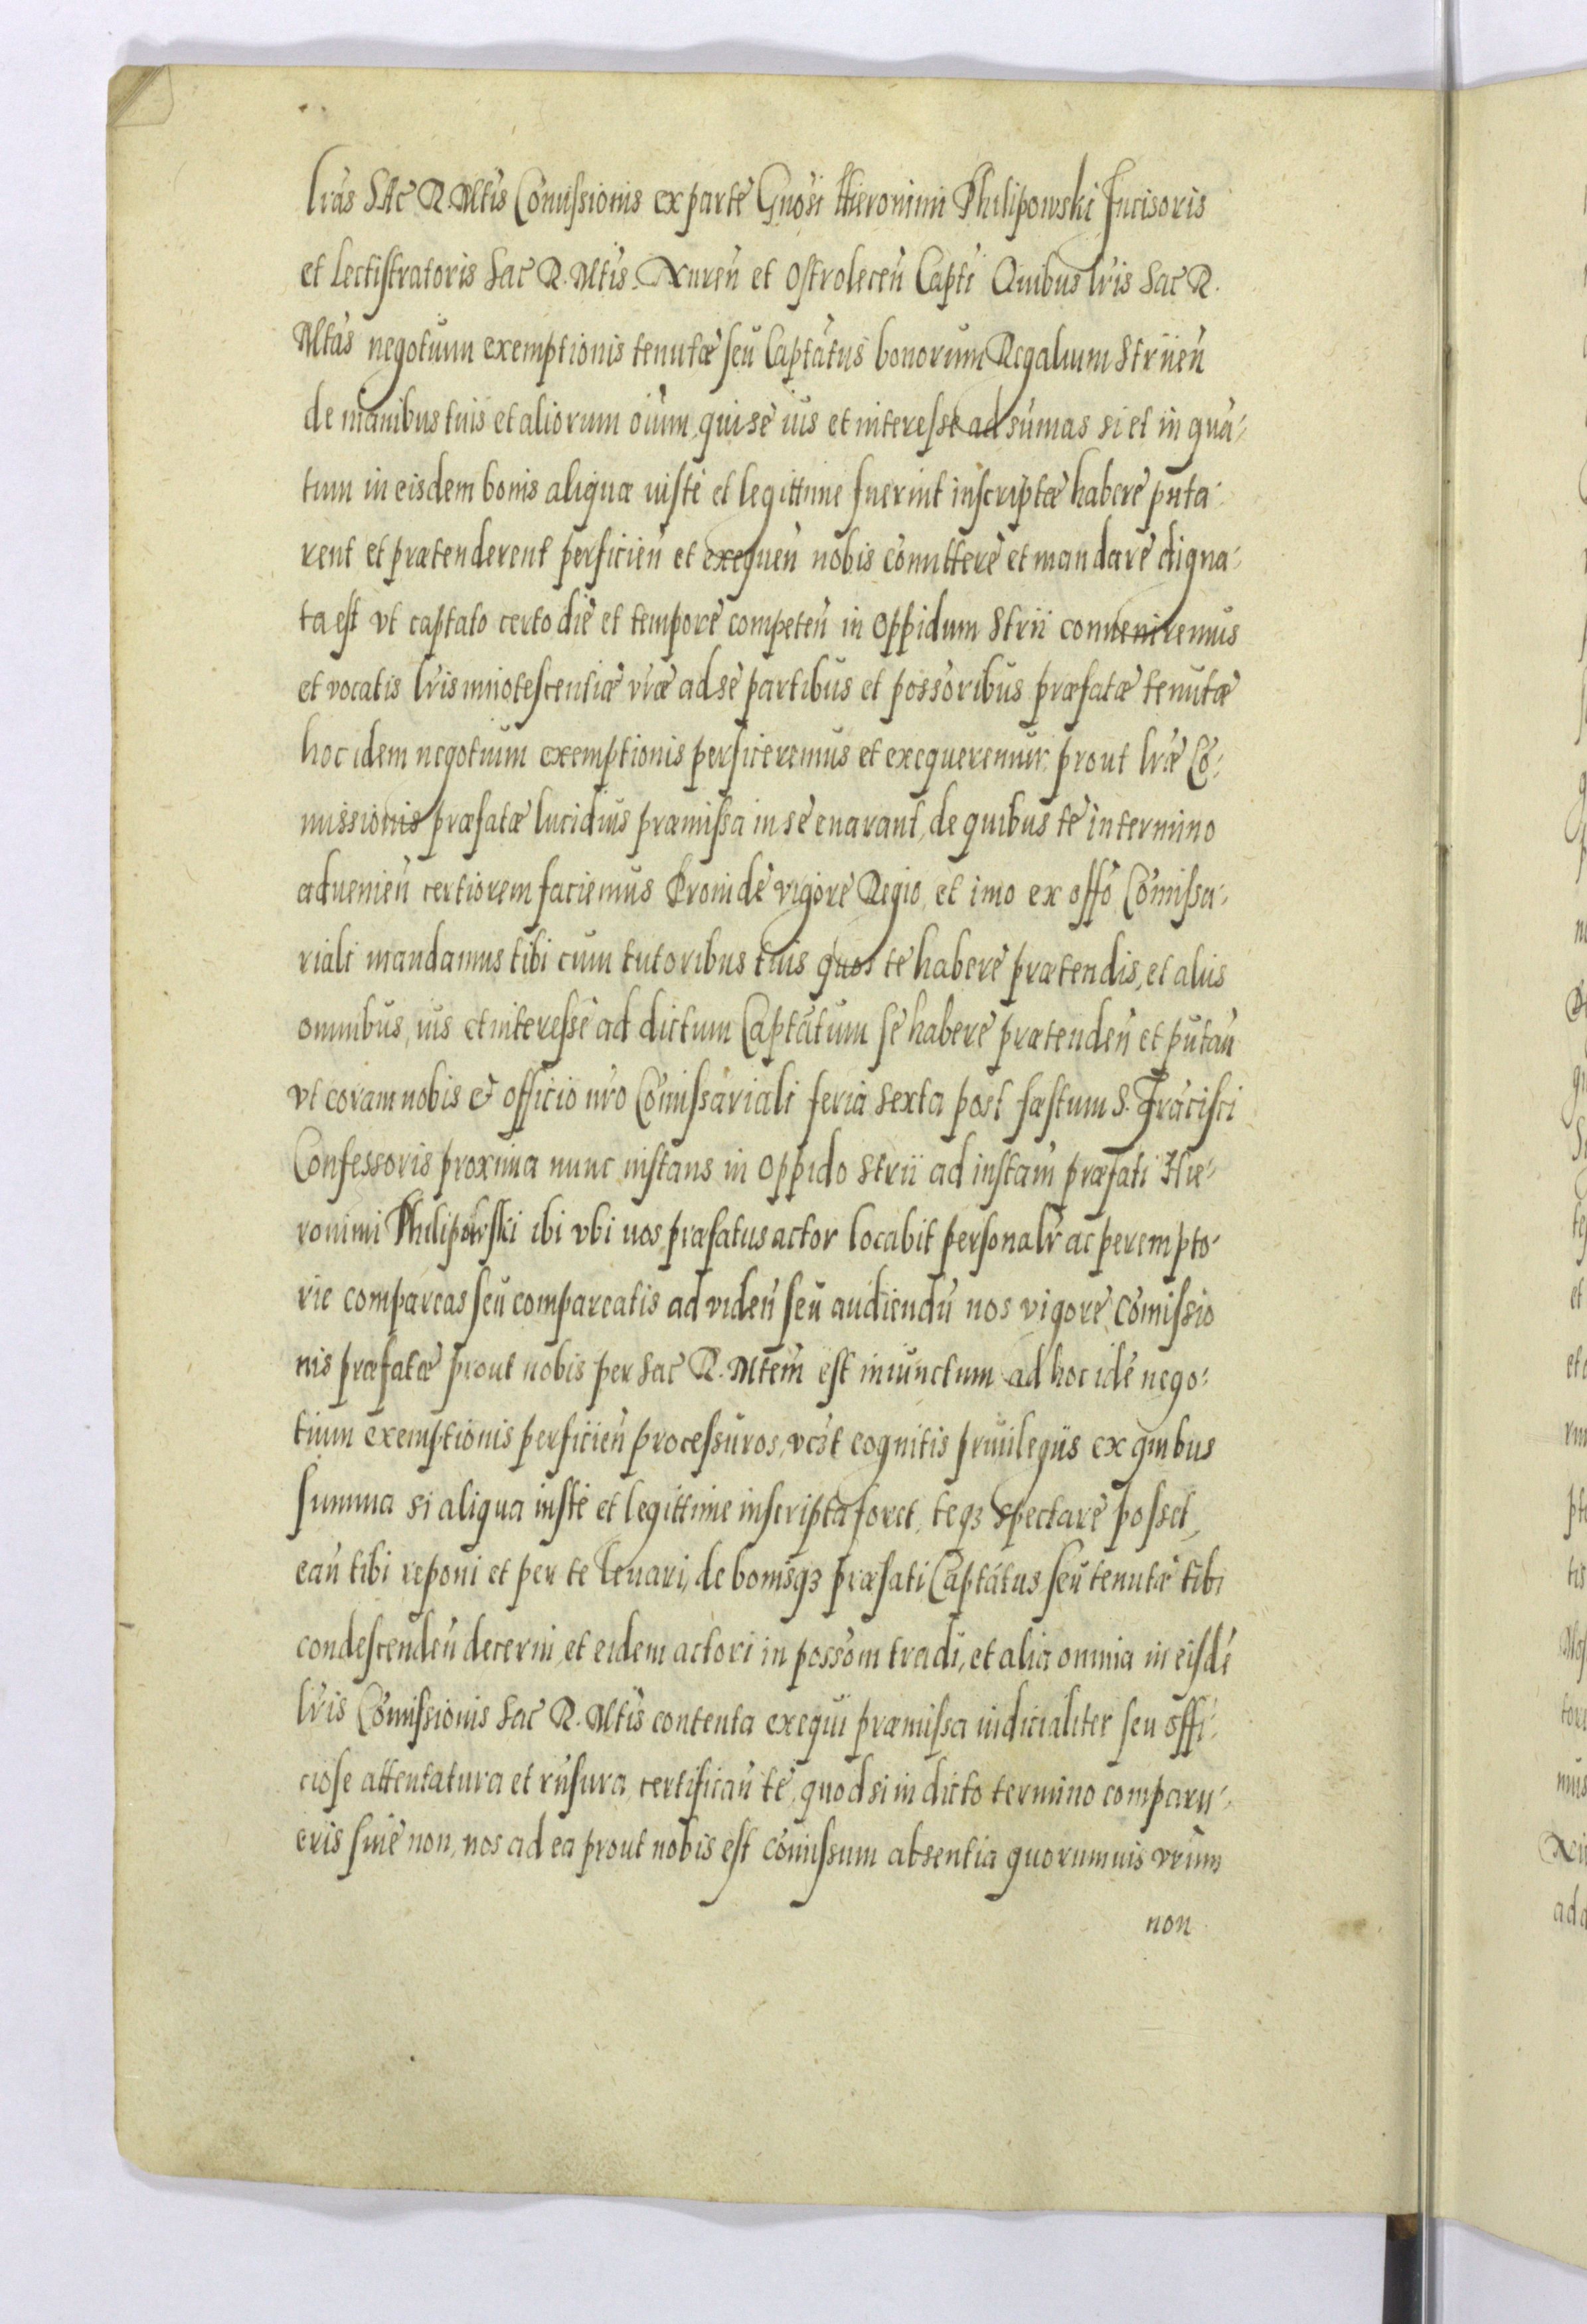 lras SAc R. Mtis Comissionis ex parte Gnosi Hieronimi Philipowski Incisoris
et Lectistratoris Sac R. Mtis. Xnren et Ostrolecen Capti Quibus lris Sac R.
Mtas negotium exemptionis tenutæ seu Captatus bonorum Regalium Striien
de manibus tuis et aliorum oium, qui se ius et interesse ad sumas si et in qua-
tum in eisdem bonis aliquæ iuste et legittime fuerint inscriptæ habere puta-
rent et prætenderent perficien et exequen nobis comittere et mandare digna-
ta est vt captato certo die et tempore competen in Oppidum Strii conueniremus
et vocatis lris innotescentiæ nræ ad se partibus et possoribus præfatæ tenutæ
hoc idem negotium exemptionis perficeremus et exequeremur, prout lræ Co-
missionis præfatæ lucidius præmissa in se enarant, de quibus te in termino
aduenien certiorem faciemus Proinde vigore Regio, et imo ex offo Comissa-
riali mandamus tibi cum tutoribus tuis quos te habere prætendis, et aliis
omnibus, ius et interesse ad dictum Captatum se habere prætenden et putan
vt coram nobis et officio nro Comissariali feria sexta post fæstum S. Fracisci
Confessoris proxima nunc instans in Oppido Strii ad instam præfati Hie-
ronimi Philipowski ibi vbi nos præfatus actor locabit personalr ac perempto-
rie compareas seu compareatis ad viden seu audiendu nos vigore Comissio
nis præfatæ prout nobis per Sac R. Mtem est iniunctum ad hoc ide nego-
tium exemptionis perficien processuros, vcst cognitis priuilegiis ex quibus
summa si aliqua iuste et legittime inscripta foret, teq3 spectare posset,
ean tibi reponi et per te leuari, de bonisq3 præfati Captatus seu tenutæ tibi
condescenden decerni, et eidem actori in possom tradi, et alia omnia in eisde
lris Comissionis Sac R. Mtis contenta exequi præmissa iudicialiter seu offi-
ciose attentatura et rusura certifican te, quod si in dicto termino comparu-
eris siue non, nos ad ea prout nobis est comissum absentia quorumuis vrum
non